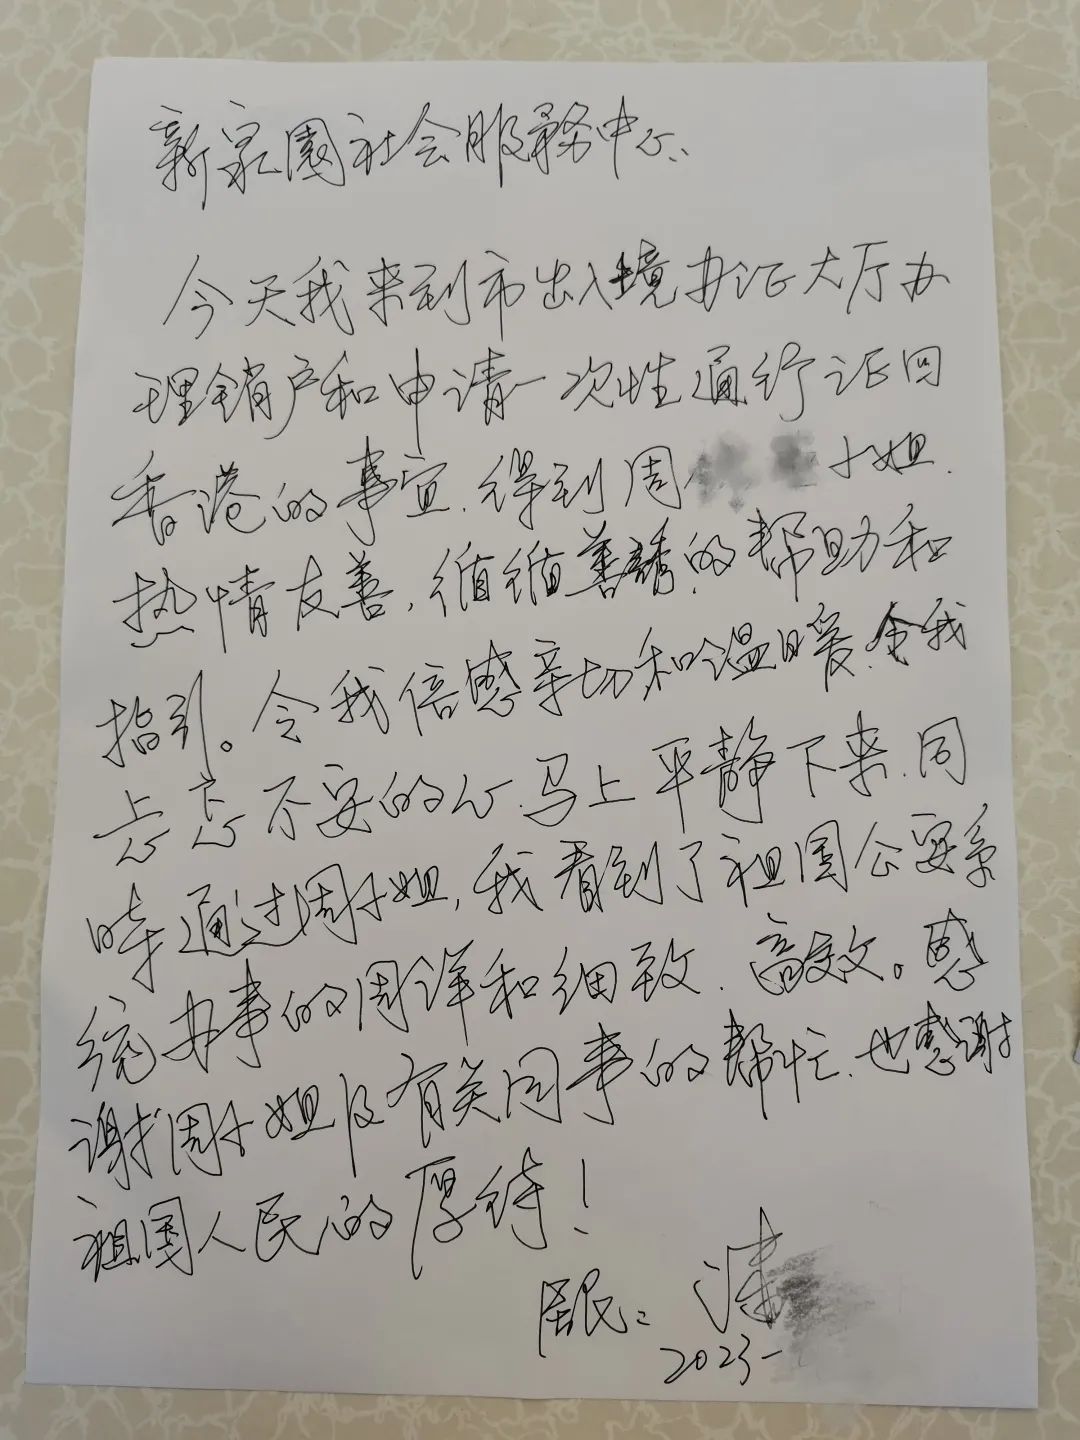 新家園社会服務中心:
今天我来到市出入境办证大厅办
理销户和申请一次性通行证回
香港的事宜.得到周小姐.
热情友善,循循善誘的帮助和
指引。令我倍感亲切和温暖.令我
忐忑不安的心.马上平静下来.同
时通过周小姐,我看到了祖国公安系
统办事的周详和细致.高效。感
谢周小姐及有关同事的帮忙.也感谢
祖国人民的厚待!
居民:潘
2023-